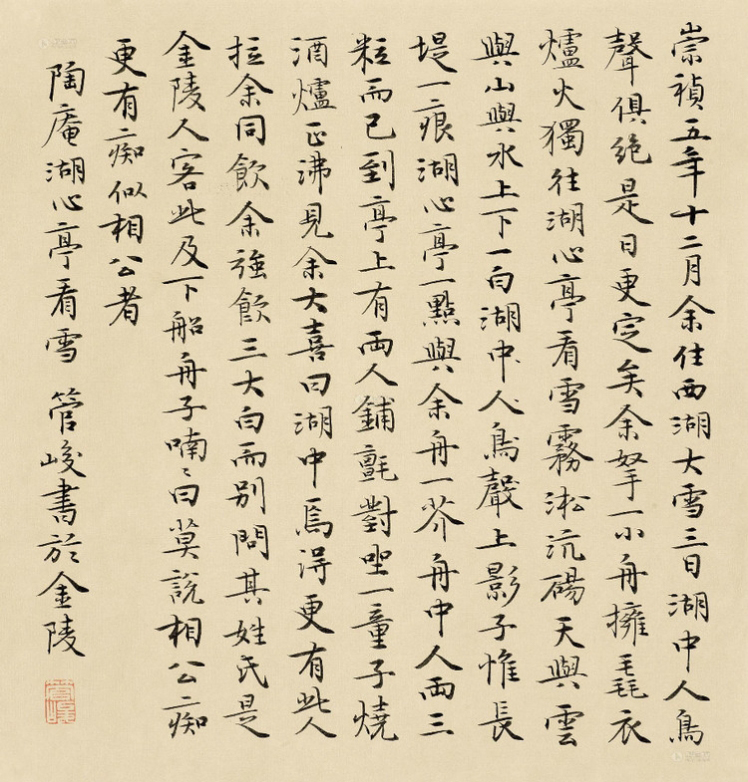 崇禎五年十二月余住西湖大雪三日湖中人鳥
聲俱絕是日更定矣余拏一小舟擁毳衣
爐火獨往湖心亭看雪霧淞沆碭天與雲
與山與水上下一白湖中人鳥聲上影子惟長
堤一痕湖心亭一點與余舟一芥舟中人兩三
粒而已到亭上有兩人鋪氈對坐一童子燒
酒爐正沸見余大喜曰湖中焉得更有此人
拉余同飲余強飲三大白而別問其姓氏是
金陵人客此及下船舟子喃〻曰莫說相公痴
更有痴似相公者
陶庵湖心亭看雪 管峻書於金陵
管峻